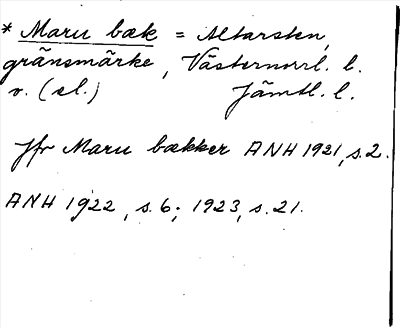 * Maru bæk = Altarsten,
gränsmärke, Västernorrl. l.
v. (el.) Jämtl. l.
Jfr Maru bækker ANH 1921, s. 2.
ANH 1922, s. 6; 1923, s. 21.